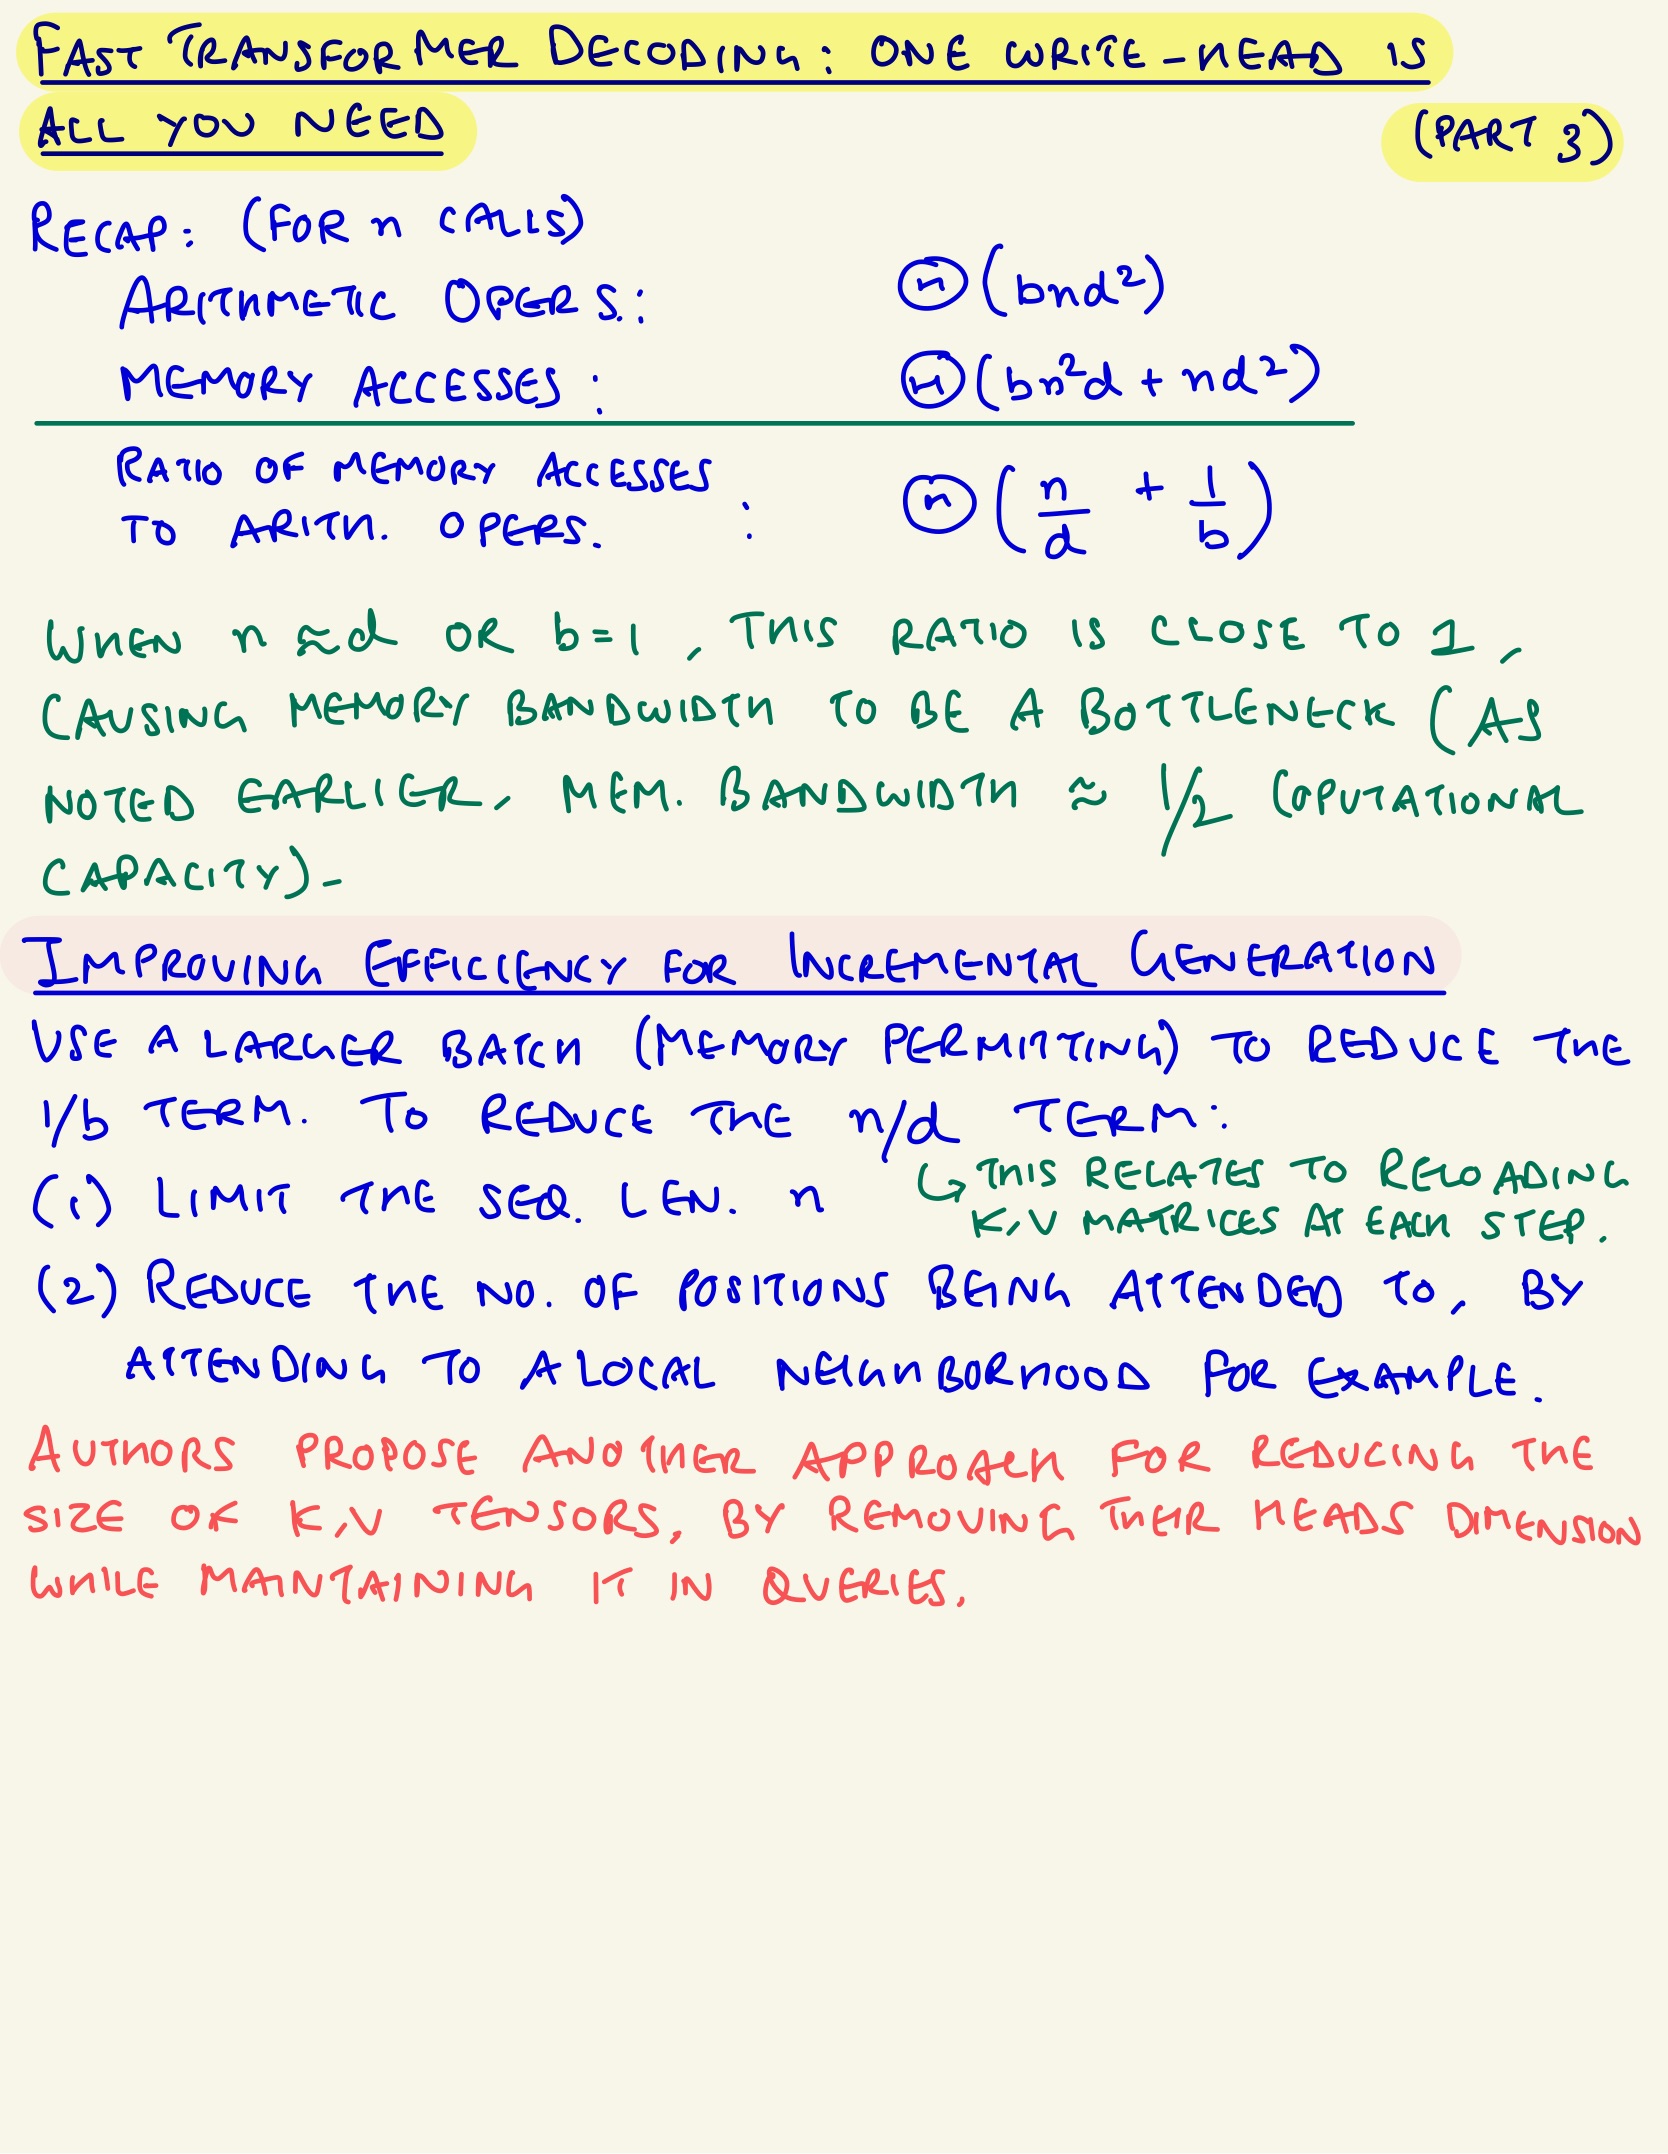 FAST TRANSFORMER DECODING: ONE WRITE-HEAD IS
ALL YOU NEED
(PART 3)
RECAP: (FOR n CALLS)
ARITHMETIC OPERS.: Θ(bnd²)
MEMORY ACCESSES: Θ(bn²d + nd²)
RATIO OF MEMORY ACCESSES
TO ARITH. OPERS. : Θ(n/d + 1/b)
WHEN n ≈ d OR b=1, THIS RATIO IS CLOSE TO 1,
CAUSING MEMORY BANDWIDTH TO BE A BOTTLENECK (AS
NOTED EARLIER, MEM. BANDWIDTH ≈ 1/2 COPUTATIONAL
CAPACITY).
IMPROVING EFFICIENCY FOR INCREMENTAL GENERATION
USE A LARGER BATCH (MEMORY PERMITTING) TO REDUCE THE
1/b TERM. TO REDUCE THE n/d TERM:
↳ THIS RELATES TO RELOADING
K,V MATRICES AT EACH STEP.
(1) LIMIT THE SEQ. LEN. n
(2) REDUCE THE NO. OF POSITIONS BEING ATTENDED TO, BY
ATTENDING TO A LOCAL NEIGHBORHOOD FOR EXAMPLE.
AUTHORS PROPOSE ANOTHER APPROACH FOR REDUCING THE
SIZE OF K,V TENSORS, BY REMOVING THEIR HEADS DIMENSION
WHILE MAINTAINING IT IN QUERIES.